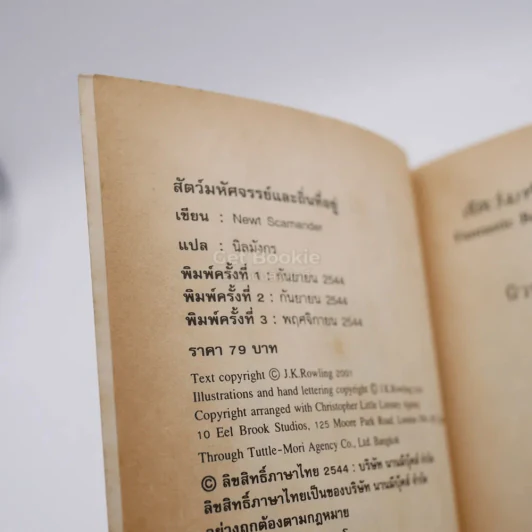 สัตว์มหัศจรรย์และถิ่นที่อยู่
เขียน : Newt Scamander
แปล : นิลมังกร
Get Bookie
พิมพ์ครั้งที่ 1 : กันยายน 2544
พิมพ์ครั้งที่ 2 : กันยายน 2544
พิมพ์ครั้งที่ 3 : พฤศจิกายน 2544
ราคา 79 บาท
Text copyright © J.K.Rowling 2001
Illustrations and hand lettering copyright © J.K.Rowling
Copyright arranged with Christopher Little Literary Agency
10 Eel Brook Studios, 125 Moore Park Road, London
Through Tuttle-Mori Agency Co., Ltd. Bangkok
© ลิขสิทธิ์ภาษาไทย 2544 : บริษัท นานมีบุ๊คส์ จำกัด
ลิขสิทธิ์ภาษาไทยเป็นของบริษัท นานมีบุ๊คส์ จำกัด
อย่างถูกต้องตามกฎหมาย
Fantastic